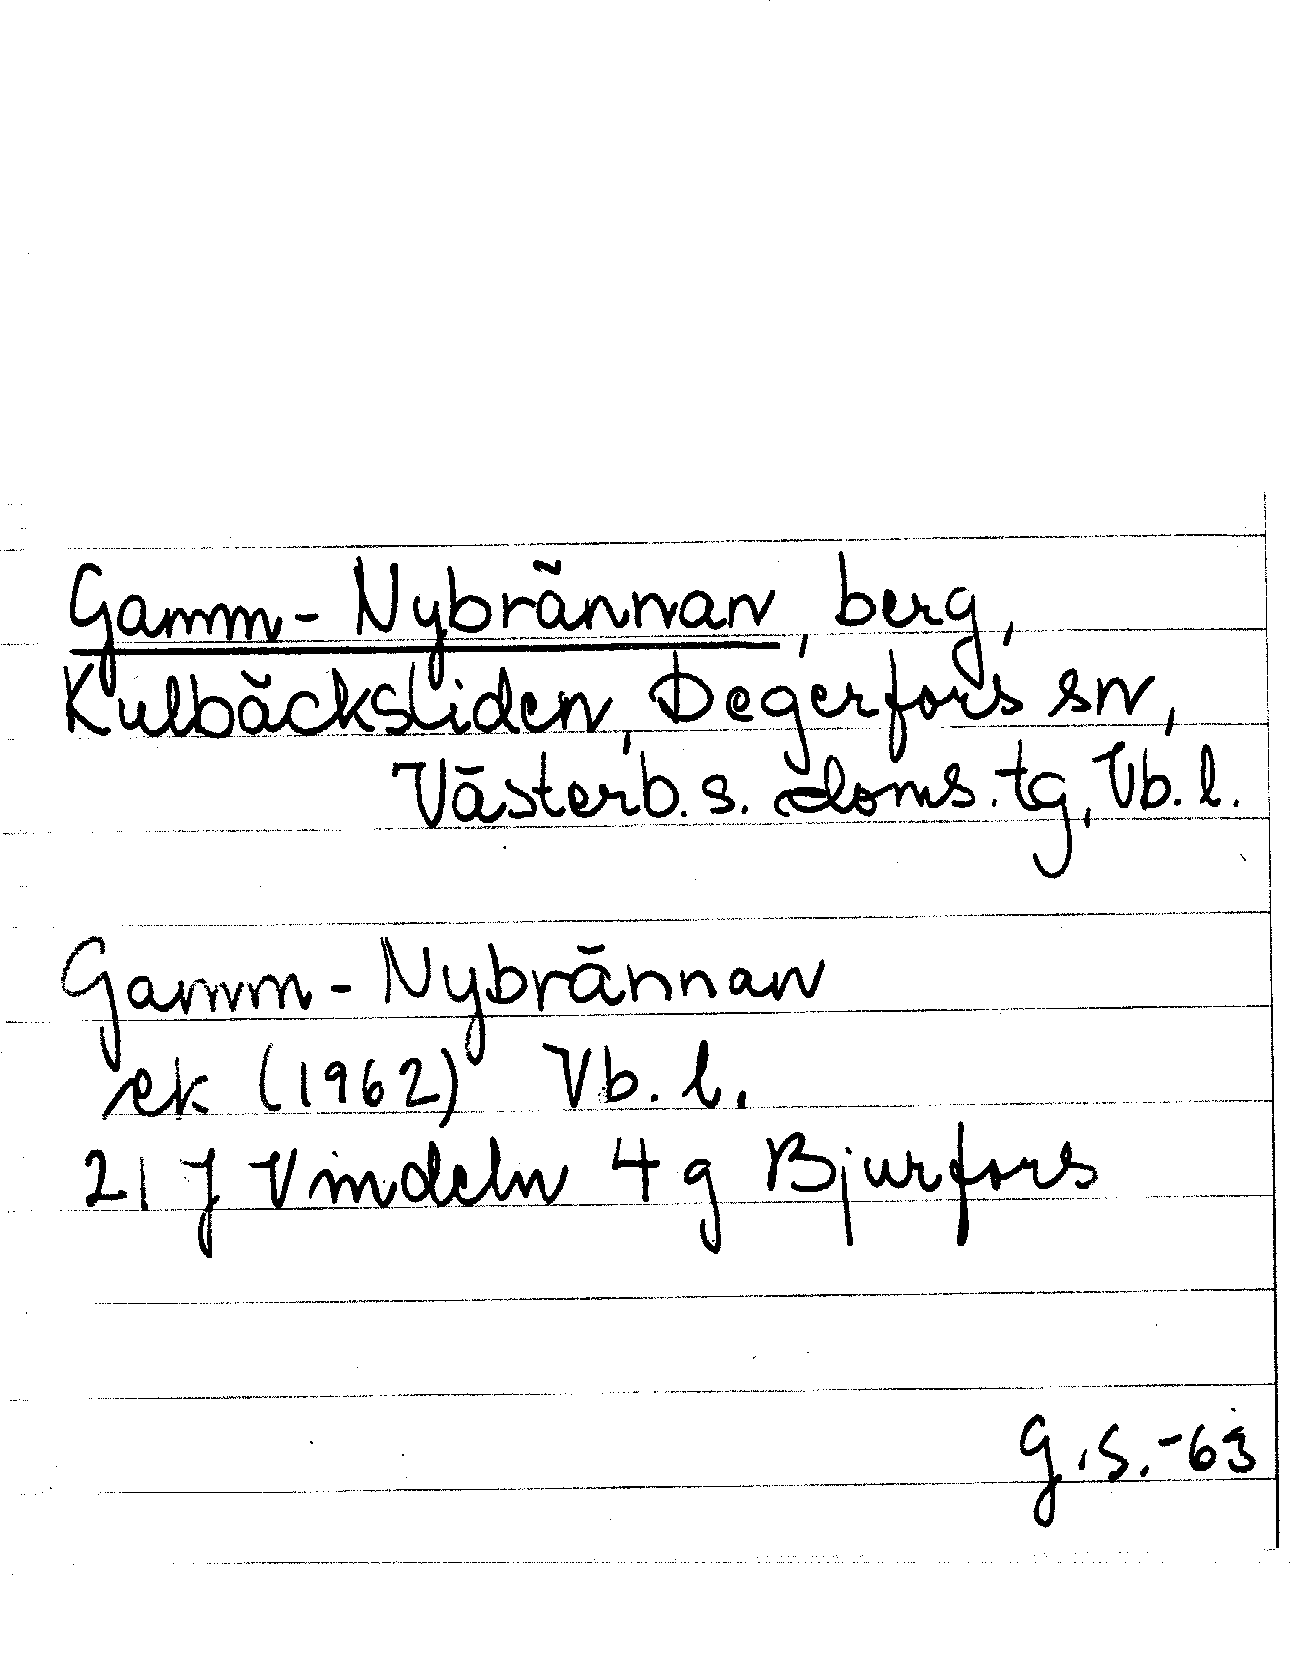 Gamm-Nybrännan, berg,
Kulbäcksliden, Degerfors sn,
Västerb. s. doms. tg, Vb. l.
Gamm-Nybrännan
ek (1962) Vb. l.
21 J Vindeln 4 g Bjurfors
G.S.-63